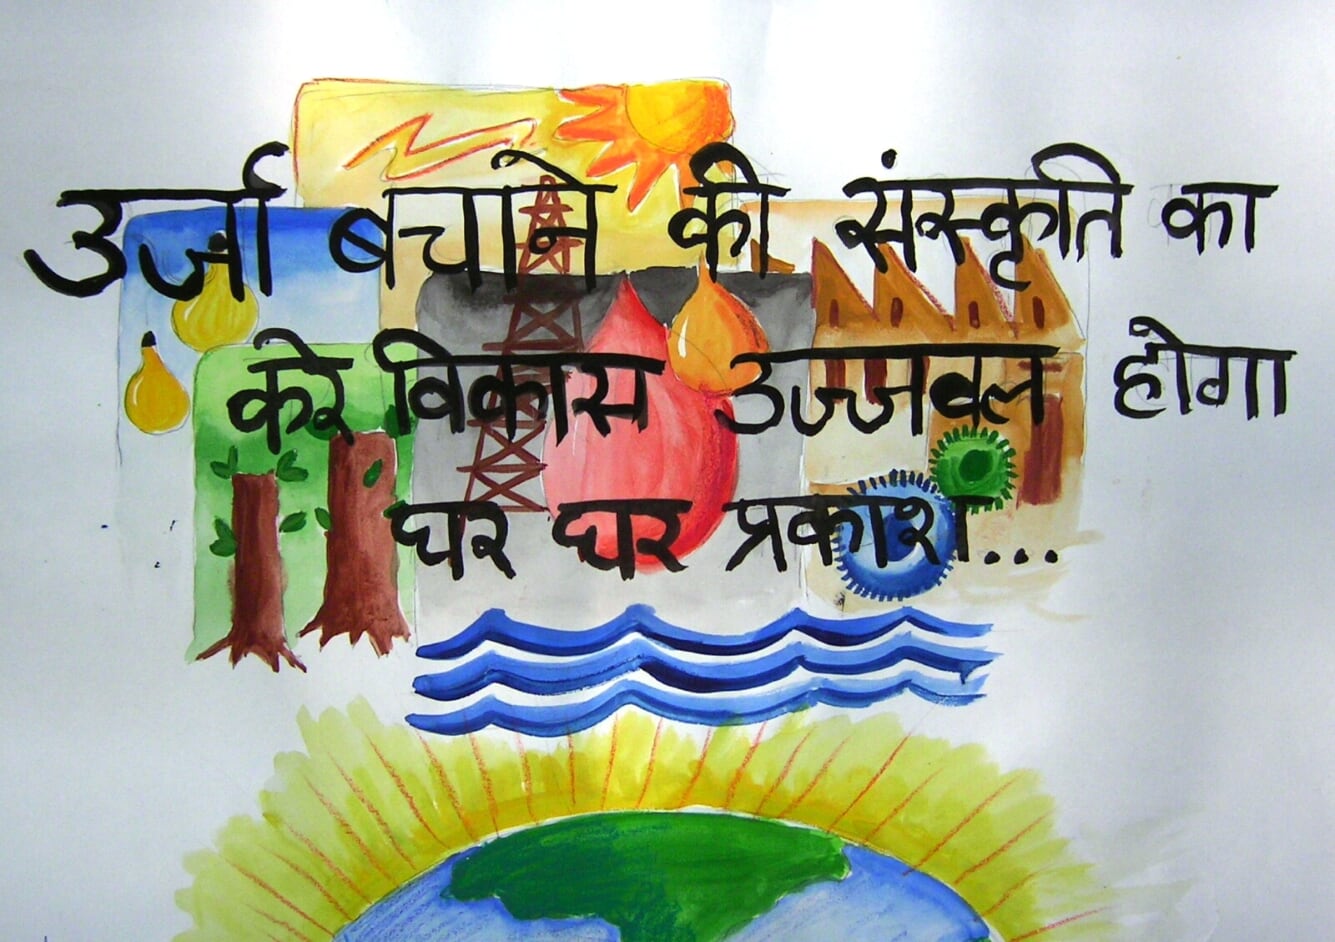 उर्जा बचाने की संस्कृति का
करे विकास उज्जवल होगा
घर घर प्रकाश...